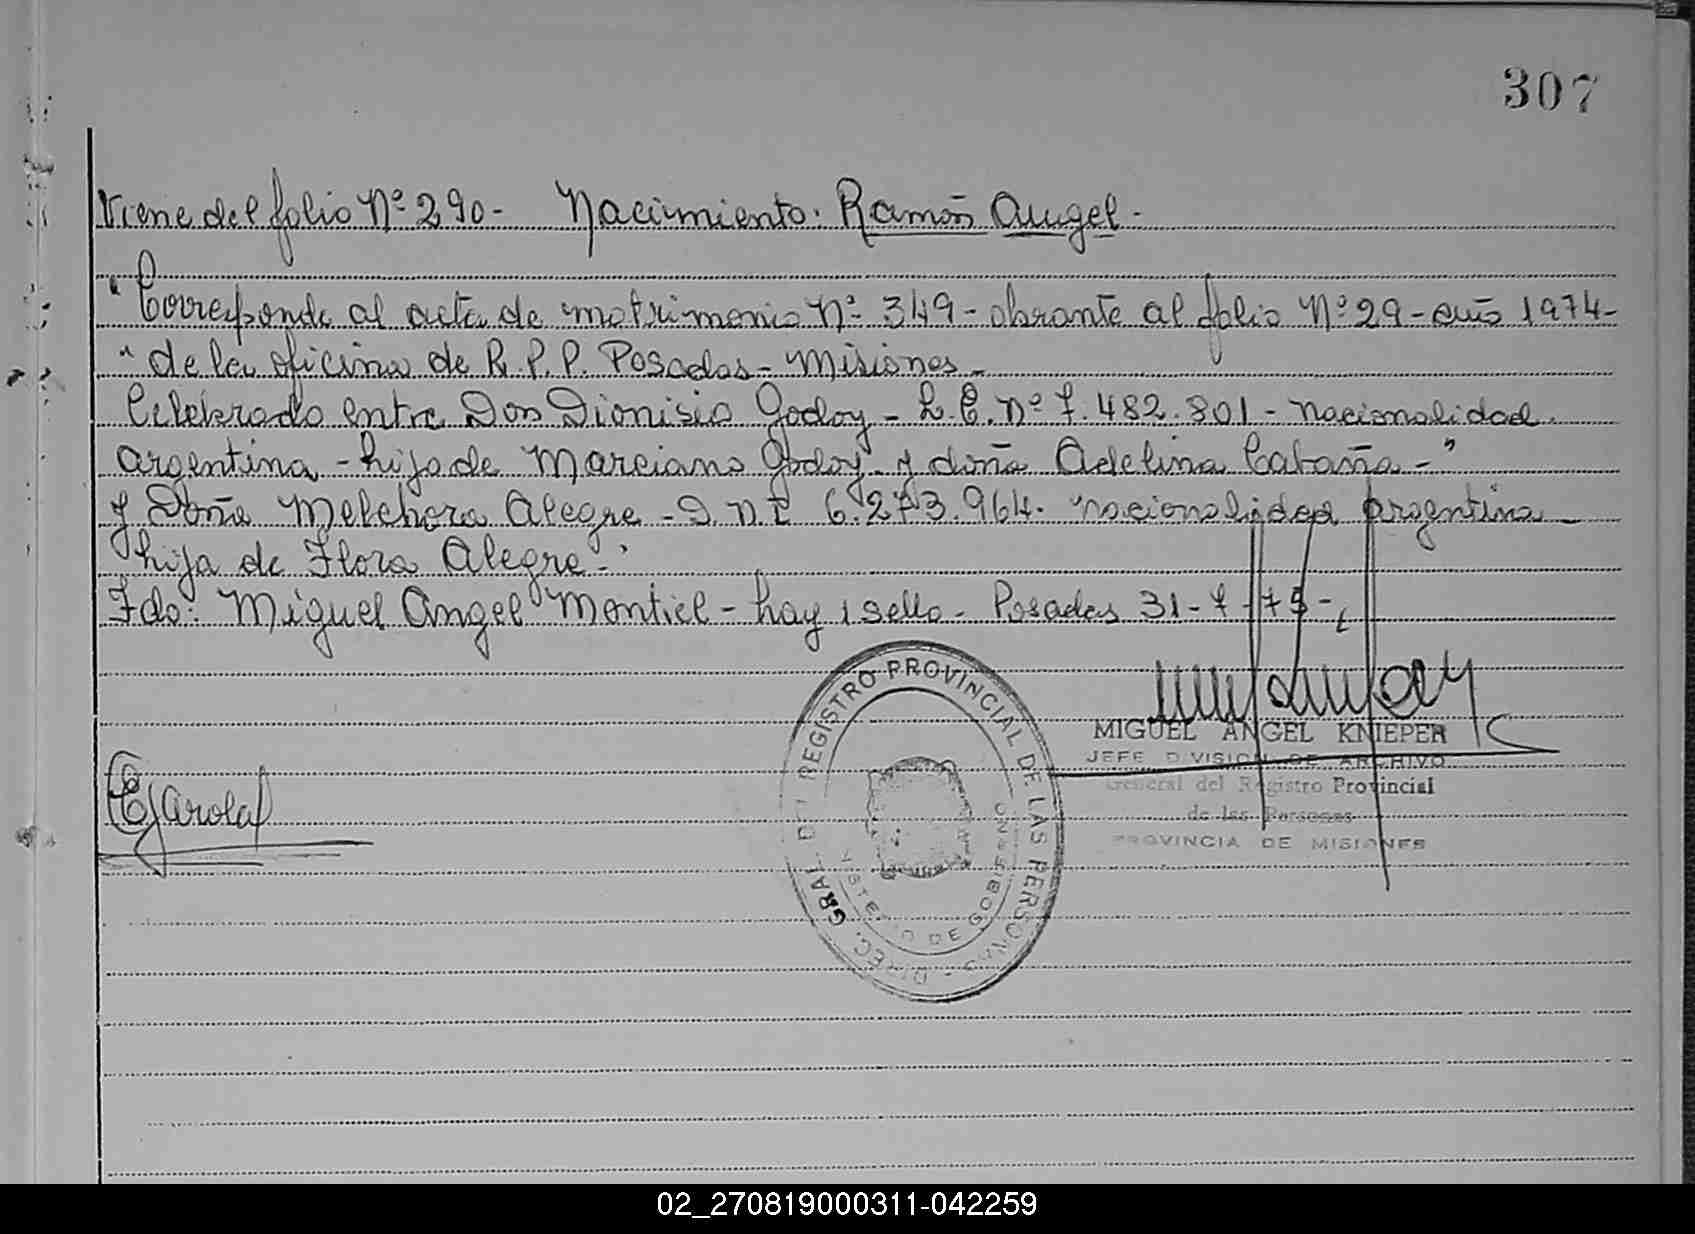 307
Viene del folio Nº 290- Nacimiento: Ramón Angel-
"Corresponde al acta de matrimonio Nº 349- obrante al folio Nº 29- año 1974-
" de la oficina de R.P.P. Posadas- Misiones-
Celebrado entre Don Dionisio Godoy- L.E. Nº 7.482.801- nacionalidad
argentina- hijo de Marciano Godoy y doña Adelina Cabaña-"
y Doña Melchora Alegre- D.N.I 6.273.964. nacionalidad argentina-
hija de Flora Alegre-"
Fdo: Miguel Angel Montiel- hay 1 sello- Posadas 31-7-75-
MIGUEL ANGEL KNIEPER
JEFE DIVISION DE ARCHIVO
General del Registro Provincial
de las Personas
PROVINCIA DE MISIONES
DIREC. GRAL. DEL REGISTRO PROVINCIAL DE LAS PERSONAS
MINISTERIO DE GOBIERNO
02_270819000311-042259